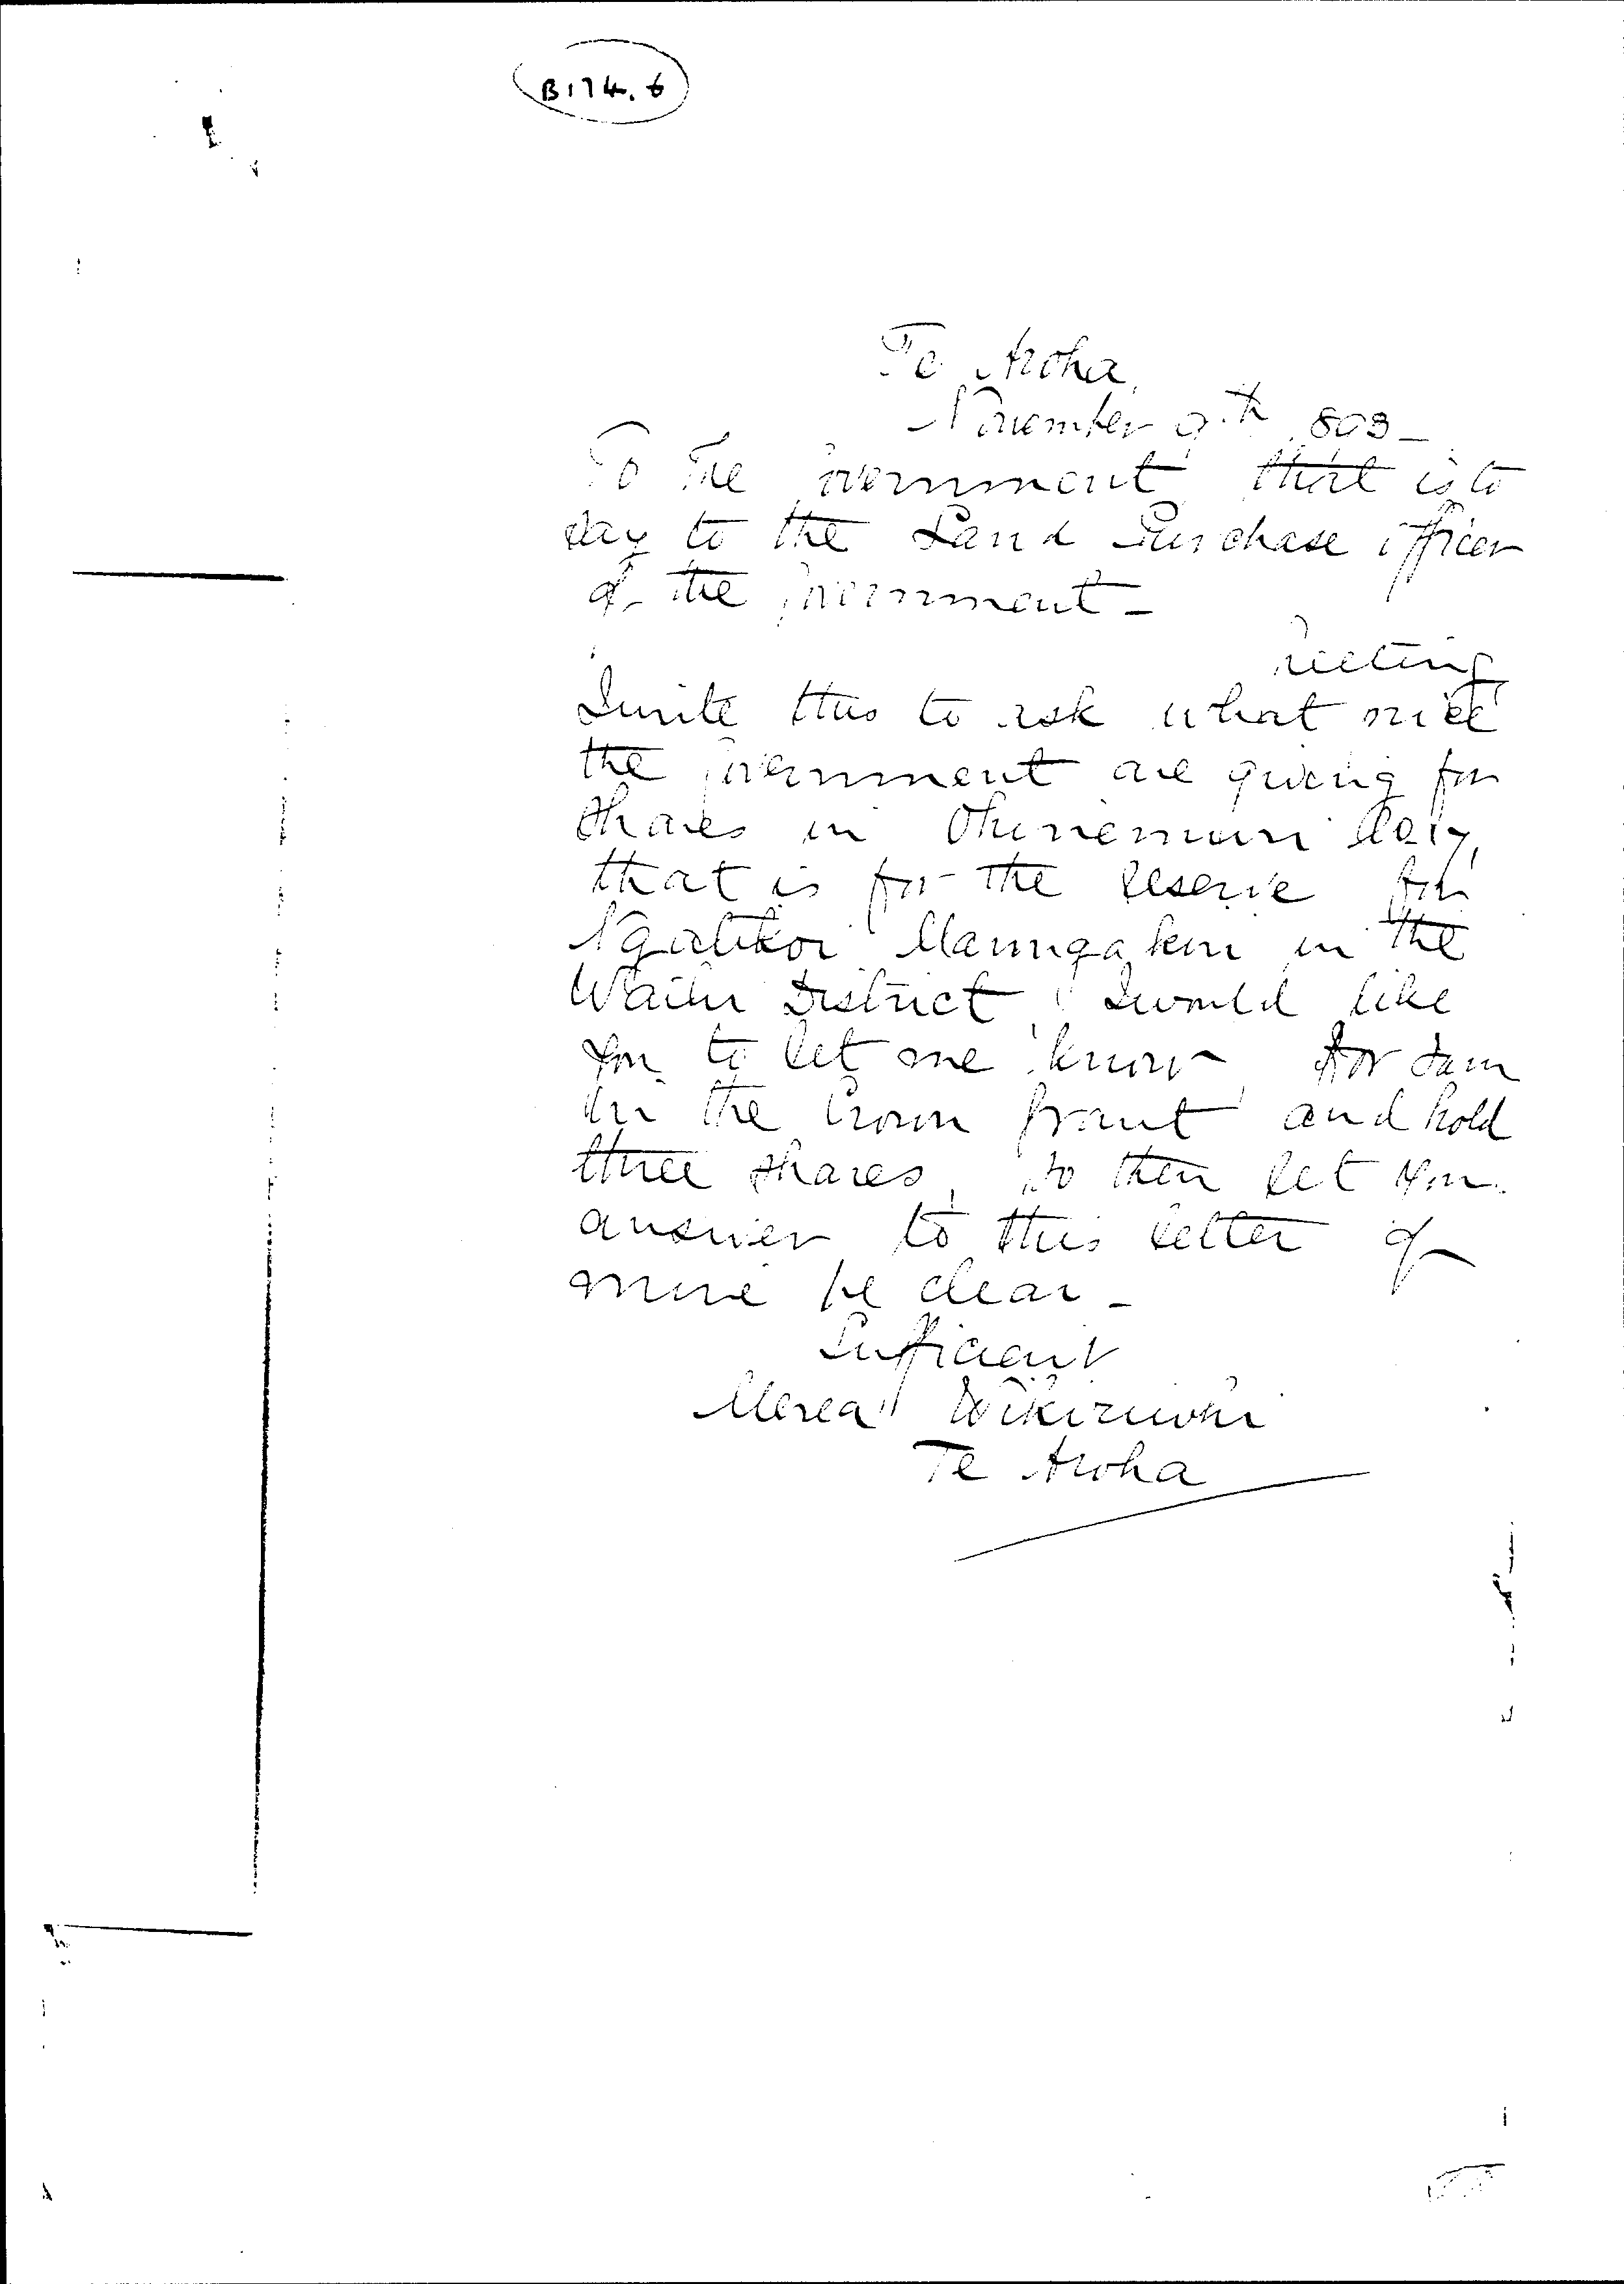 B174.6
Te Aroha,
November 9th 
To the Government that is to
say to the Land Purchase Officer
of the Government -
Greeting
I write this to ask what price
the Government are giving for
shares in Ohinemuri No 17,
that is for the reserve for
Ngatikoi in the
Waihi District, I would like
you to let me know for I am
in the Crown Grant and hold
three shares, so then let your
answer to this letter of
mine be clear -
Sufficient
Merea Wikiriwhi
Te Aroha